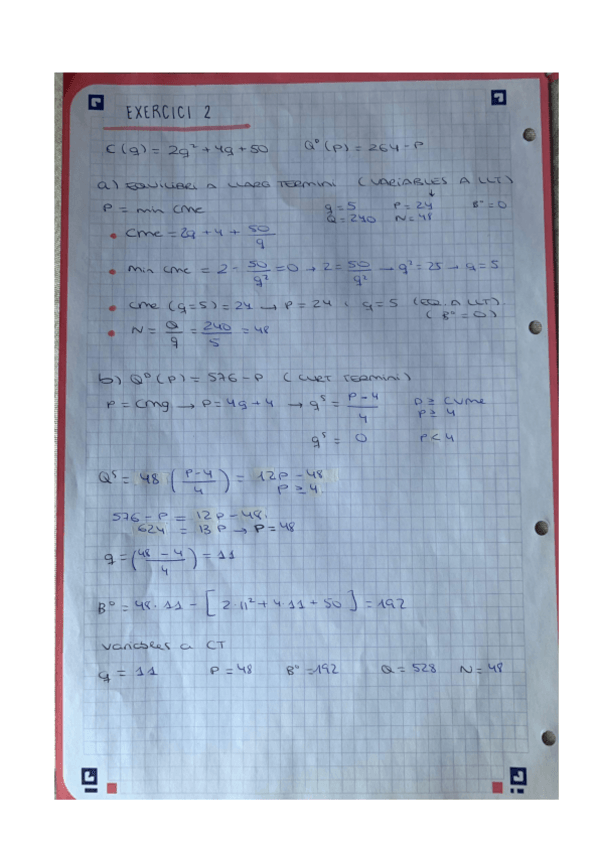 EXERCICI 2
C(q) = 2q² + 4q + 50 Qᴰ(P) = 264 - P
a) EQUILIBRI A LLARG TERMINI (VARIABLES A LLT)
P = min CMe q = 5 P = 24 Bº = 0
Q = 240 N = 48
• CMe = 2q + 4 + 50/q
• min CMe = 2 - 50/q² = 0 → 2 = 50/q² → q² = 25 → q = 5
• CMe (q=5) = 24 → P = 24 i q = 5 (EQ. A LLT)
(Bº = 0)
• N = Q/q = 240/5 = 48
b) Qᴰ(P) = 576 - P (CURT TERMINI)
P = CMg → P = 4q + 4 → qˢ = (P - 4)/4 P ≥ CVMe
P ≥ 4
qˢ = 0 P < 4
Qˢ = 48 (P-4/4) = 12P - 48
P ≥ 4.
576 - P = 12P - 48
624 = 13P → P = 48
q = (48 - 4/4) = 11
Bº = 48 · 11 - [2·11² + 4·11 + 50] = 192
variables a CT
q = 11 P = 48 Bº = 192 Q = 528 N = 48